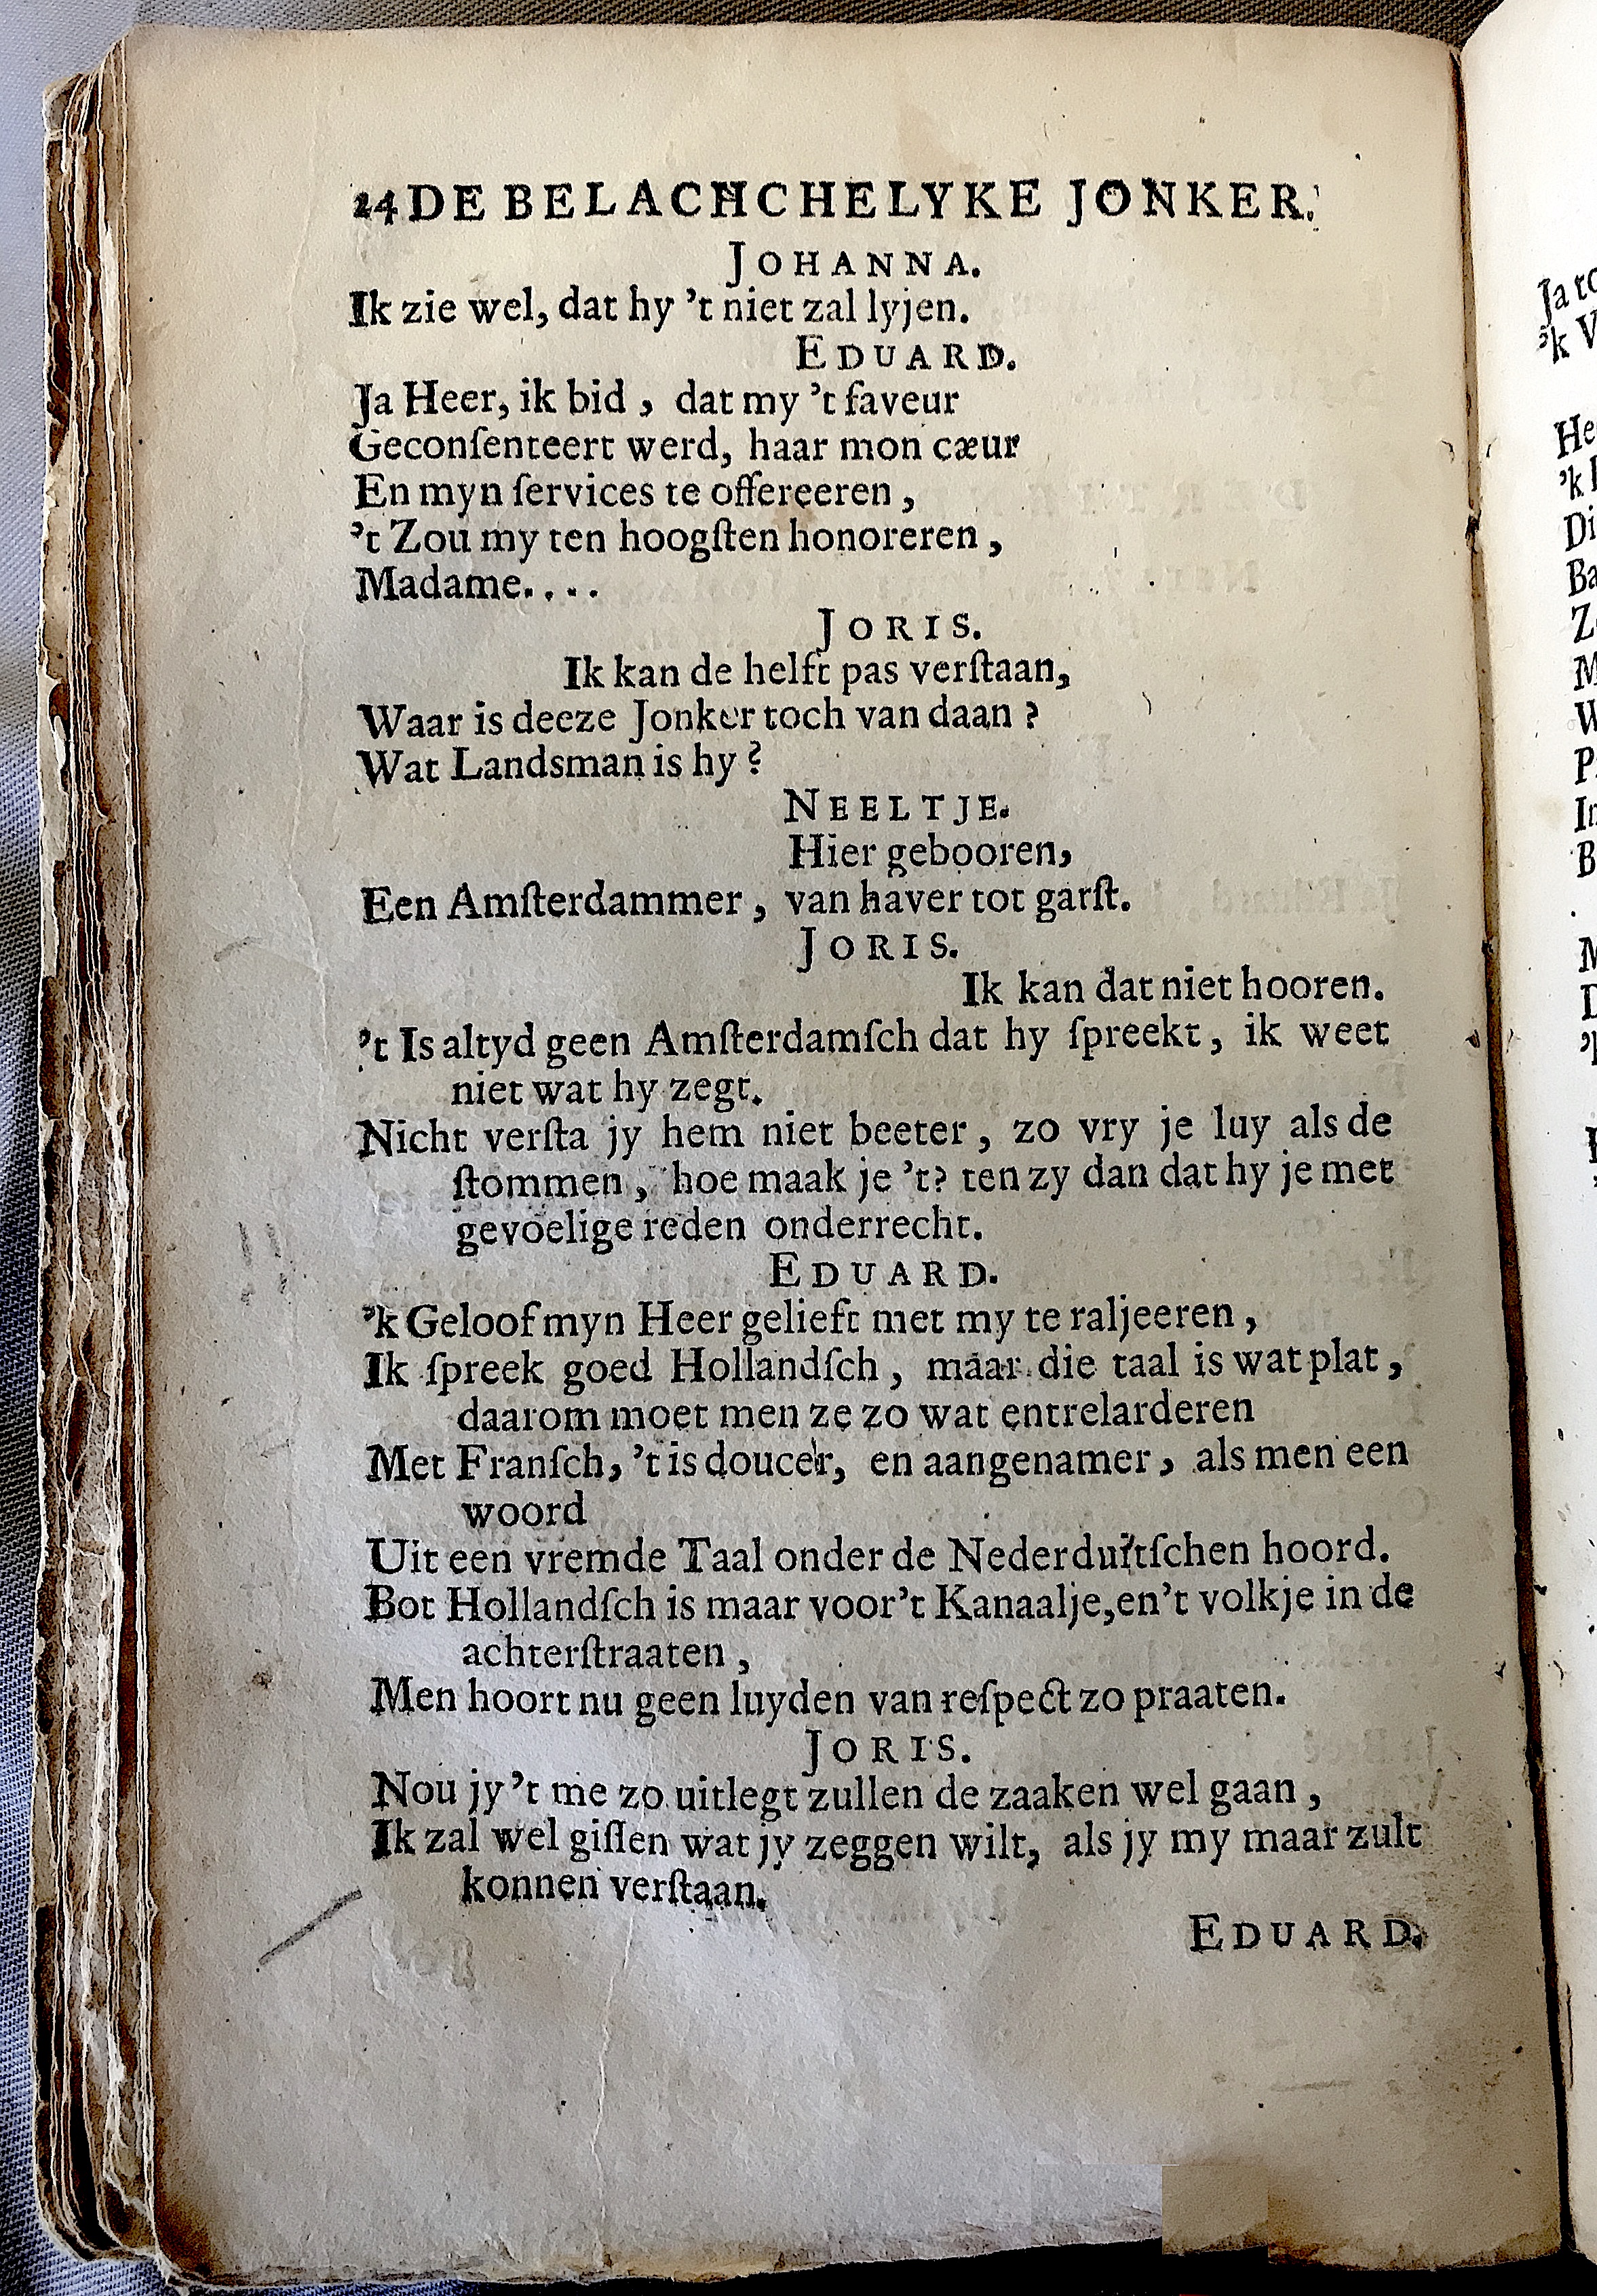 24 DE BELACHCHELYKE JONKER.
JOHANNA.
Ik zie wel, dat hy 't niet zal lyjen.
EDUARD.
Ja Heer, ik bid, dat my 't faveur
Geconſenteert werd, haar mon cæur
En myn ſervices te offereeren,
't Zou my ten hoogſten honoreren,
Madame....
JORIS.
Ik kan de helft pas verſtaan,
Waar is deeze Jonker toch van daan?
Wat Landsman is hy?
NEELTJE.
Hier gebooren,
Een Amſterdammer, van haver tot garſt.
JORIS.
Ik kan dat niet hooren.
't Is altyd geen Amſterdamſch dat hy ſpreekt, ik weet
niet wat hy zegt.
Nicht verſta jy hem niet beeter, zo vry je luy als de
ſtommen, hoe maak je 't? ten zy dan dat hy je met
gevoelige reden onderrecht.
EDUARD.
'k Geloof myn Heer gelieft met my te raljeeren,
Ik ſpreek goed Hollandſch, maar die taal is wat plat,
daarom moet men ze zo wat entrelarderen
Met Franſch, 't is doucer, en aangenamer, als men een
woord
Uit een vremde Taal onder de Nederduitſchen hoord.
Bot Hollandſch is maar voor 't Kanaalje, en 't volkje in de
achterſtraaten,
Men hoort nu geen luyden van reſpect zo praaten.
JORIS.
Nou jy 't me zo uitlegt zullen de zaaken wel gaan,
Ik zal wel giſſen wat jy zeggen wilt, als jy my maar zult
konnen verſtaan.
EDUARD.
Ja
'k V
He
'k
Di
Ba
Z
M
W
P
In
B
M
D